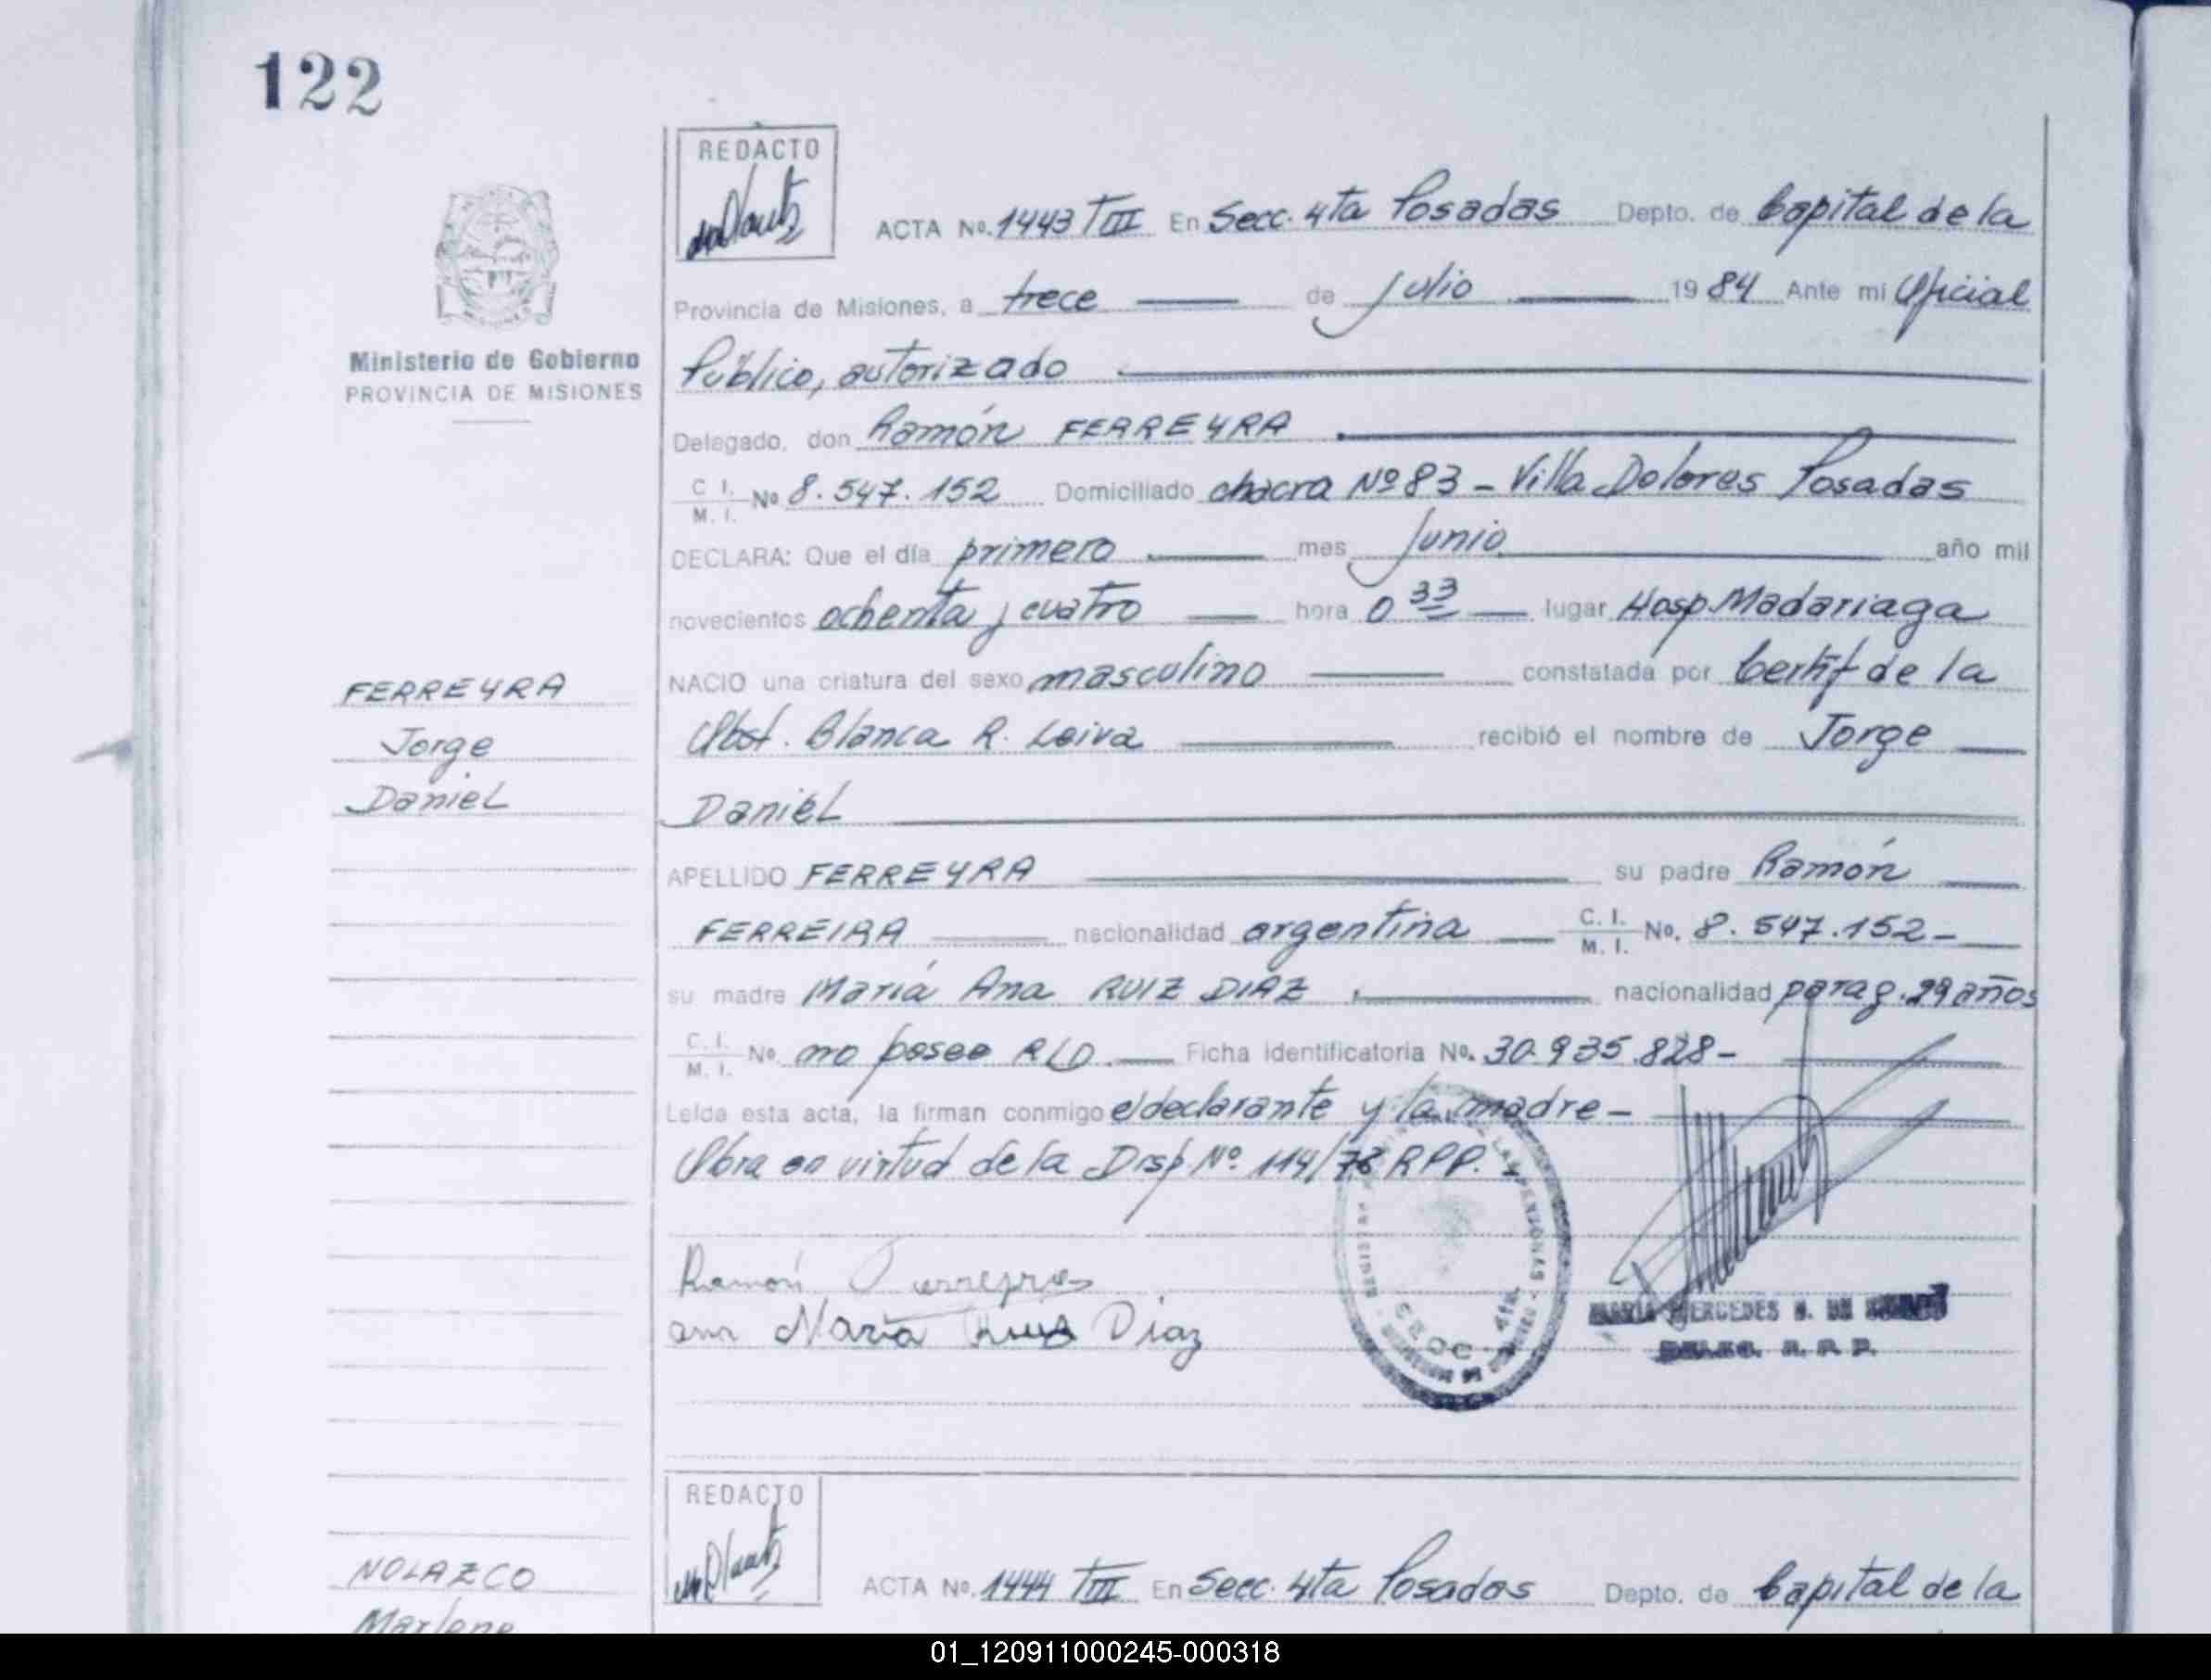 122
REDACTO
ACTA Nº. 1443 TIII En Secc. 4ta Posadas Depto. de Capital de la
Provincia de Misiones, a trece de Julio 1984 Ante mi Oficial
Público, autorizado
Delegado, don Ramón FERREYRA
C. I. M. I. Nº 8.547.152 Domiciliado chacra Nº 83 - Villa Dolores Posadas
DECLARA: Que el día primero mes Junio año mil
novecientos ochenta y cuatro hora 0 33 lugar Hosp. Madariaga
NACIO una criatura del sexo masculino constatada por Certif de la
Obst. Blanca R. Leiva recibió el nombre de Jorge
Daniel
APELLIDO FERREYRA su padre Ramón
FERREIRA nacionalidad argentina C. I. M. I. No. 8.547.152-
su madre María Ana RUIZ DIAZ nacionalidad parag. 29 años
C. I. M. I. Nº no posee RLD. Ficha identificatoria No. 30.935.828-
Leída esta acta, la firman conmigo el declarante y la madre-
Obra en virtud de la Disp Nº 114/78 RPP.
Ramón Ferreyra
ana Maria Ruis Diaz
SECC. 4ta.
MARIA MERCEDES N. DE
R. P. P.
Ministerio de Gobierno
PROVINCIA DE MISIONES
FERREYRA
Jorge
Daniel
REDACTO
ACTA Nº. 1444 TIII En Secc. 4ta Posadas Depto. de Capital de la
NOLAZCO
Marlene
01_120911000245-000318